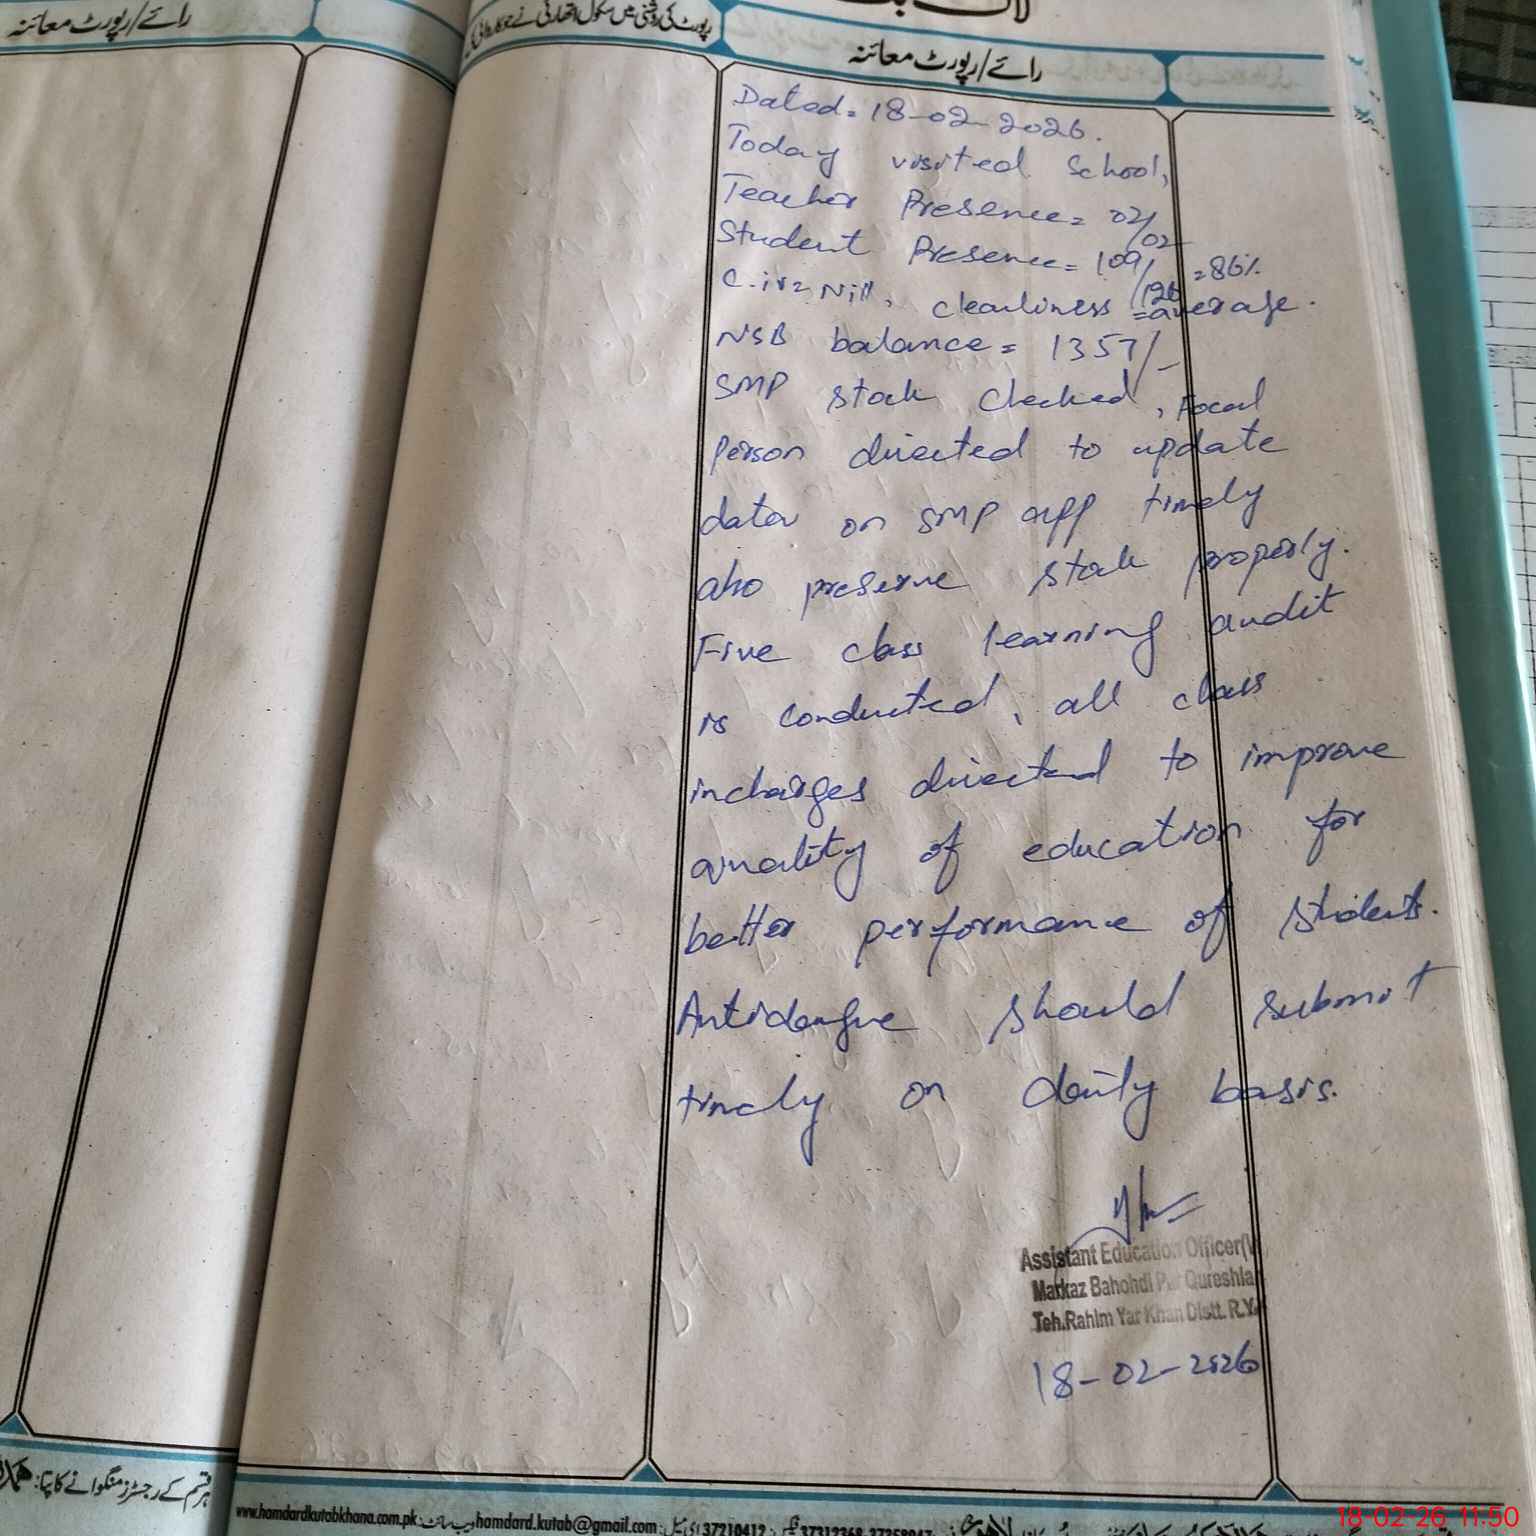 لاگ بک
رائے/رپورٹ معائنہ
رپورٹ کی روشنی میں سکول اتھارٹی نے جو کاروائی کی
رائے/رپورٹ معائنہ
Dated = 18-02-2026.
Today visited School,
Teacher Presence = 02/02
Student Presence = 109/126 = 86%
C.i = Nill, cleanliness = average.
NSB balance = 1357/-
SMP stock checked, Focal
person directed to update
data on SMP app timely
also preserve stock properly.
Five class learning audit
is conducted, all class
incharges directed to improve
quality of education for
better performance of students.
Antidengue should submit
timely on daily basis.
Assistant Education Officer(
Markaz Bahohdi Pur Qureshia
Teh.Rahim Yar Khan Distt. R.Y.
18-02-2026
ہر قسم کے رجسٹرز منگوانے کا پتا:
www.hamdardkutabkhana.com.pk ویب سائٹ: hamdard.kutab@gmail.com ای میل: 37210412
18-02-26 11:50